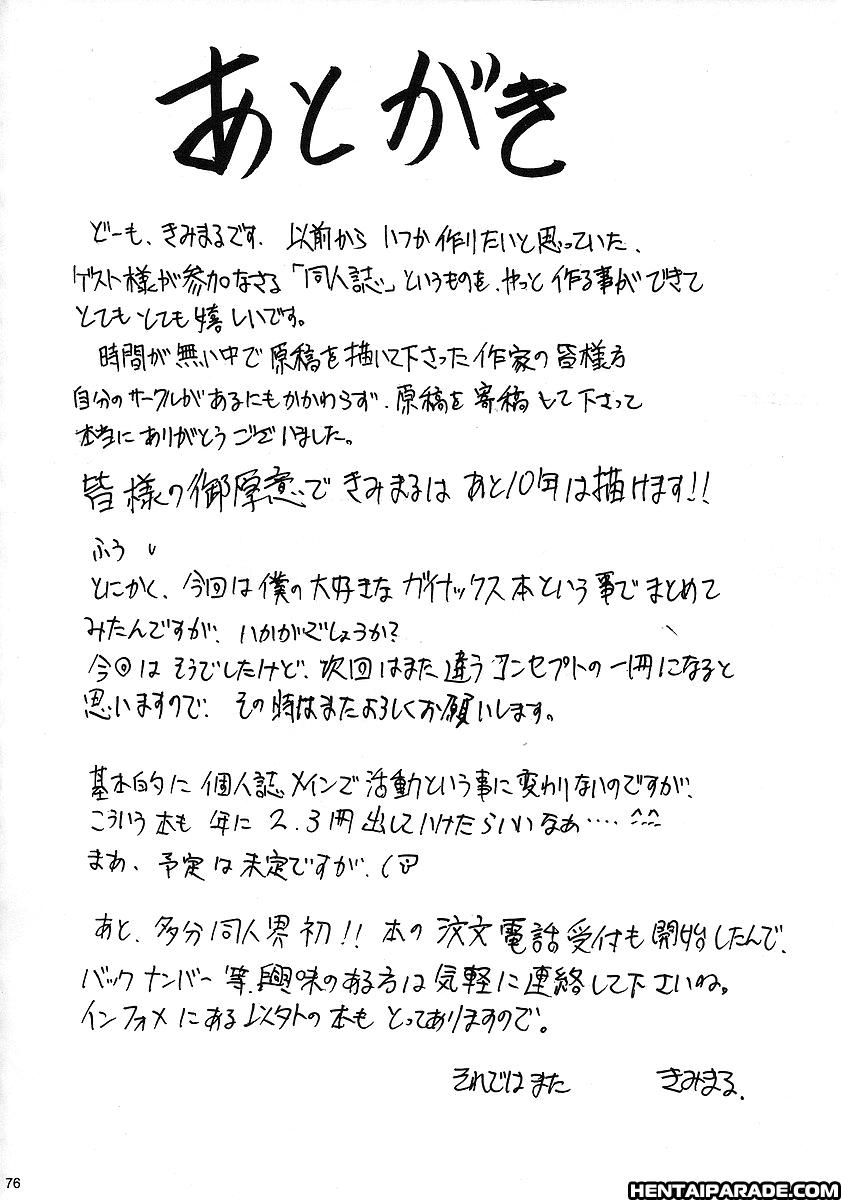 あとがき
どーも、きみまるです。以前からいつか作りたいと思っていた、
ゲスト様が参加なさる「同人誌」というものを、やっと作る事ができて
とてもとても嬉しいです。
時間が無い中で原稿を描いて下さった作家の皆様方
自分のサークルがあるにもかかわらず、原稿を寄稿して下さって
本当にありがとうございました。
皆様の御厚意できみまるはあと10年は描けます!!
ふう
とにかく、今回は僕の大好きなガイナックス本という事でまとめて
みたんですが、いかがでしょうか?
今回はそうでしたけど、次回はまた違うコンセプトの一冊になると
思いますので、その時はまたよろしくお願いします。
基本的に個人誌メインで活動という事に変わりないのですが、
こういう本も年に2.3冊出していけたらいいなあ‥‥^^
まあ、予定は未定ですが、(
あと、多分同人界初!!本の注文電話受付も開始したんで、
バックナンバー等、興味のある方は気軽に連絡して下さいね。
インフォメにある以外の本もとってありますので。
それではまた きみまる.
76
HENTAIPARADE.COM